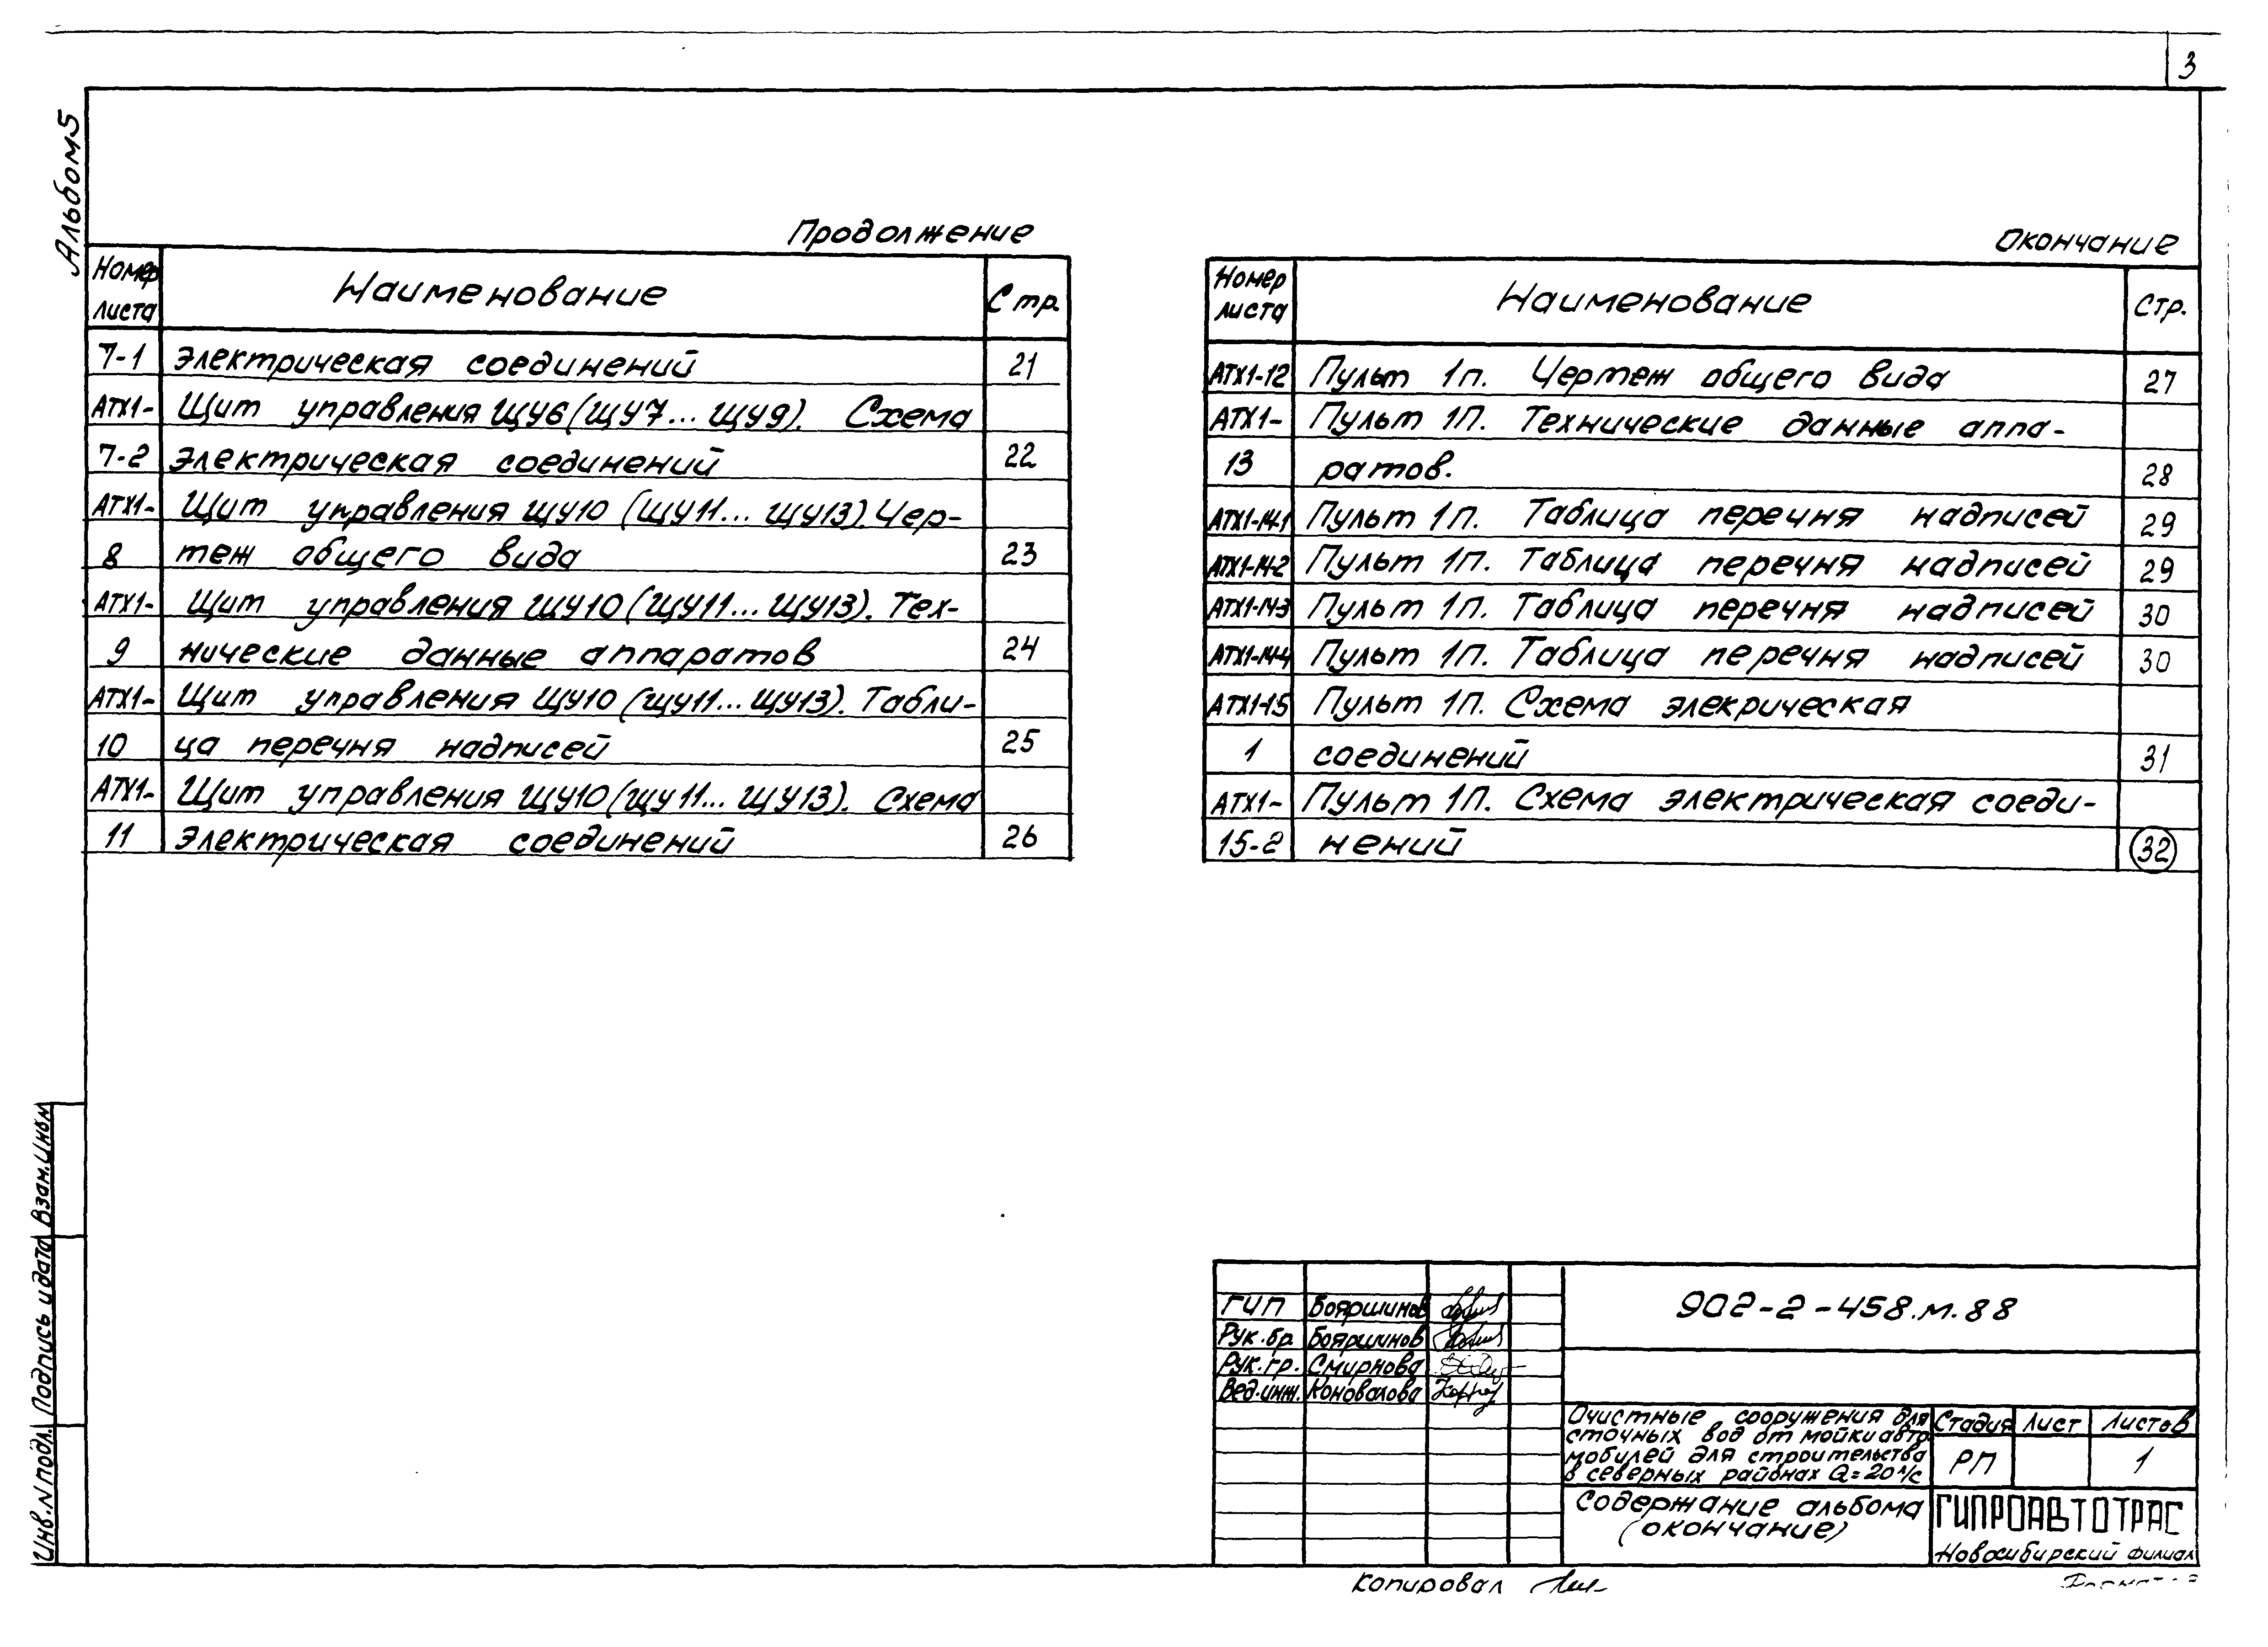 3
Альбом 5
Продолжение
Номер листа Наименование Стр.
7-1 электрическая соединений 21
АТХ1- Щит управления ЩУ6 (ЩУ7... ЩУ9). Схема
7-2 электрическая соединений 22
АТХ1- Щит управления ЩУ10 (ЩУ11... ЩУ13). Чер-
8 теж общего вида 23
АТХ1- Щит управления ЩУ10 (ЩУ11... ЩУ13). Тех-
9 нические данные аппаратов 24
АТХ1- Щит управления ЩУ10 (ЩУ11... ЩУ13). Табли-
10 ца перечня надписей 25
АТХ1- Щит управления ЩУ10 (ЩУ11... ЩУ13). Схема
11 электрическая соединений 26
Окончание
Номер листа Наименование Стр.
АТХ1-12 Пульт 1п. Чертеж общего вида 27
АТХ1- Пульт 1П. Технические данные аппа-
13 ратов. 28
АТХ1-14.1 Пульт 1П. Таблица перечня надписей 29
АТХ1-14-2 Пульт 1П. Таблица перечня надписей 29
АТХ1-14-3 Пульт 1П. Таблица перечня надписей 30
АТХ1-14-4 Пульт 1П. Таблица перечня надписей 30
АТХ1-15 Пульт 1П. Схема элекрическая
1 соединений 31
АТХ1- Пульт 1П. Схема электрическая соеди-
15-2 нений 32
Инв.N подл. Подпись и дата Взам.Инв.N
ГИП Бояршинов
Рук.бр. Бояршинов
Рук.гр. Смирнова
Вед.инж. Коновалова
902-2-458.м.88
Очистные сооружения для
сточных вод от мойки авто
мобилей для строительства
в северных районах Q=20 л/с
Стадия Лист Листов
РП 1
Содержание альбома
(окончание)
ГИПРОАВТОТРАС
Новосибирский филиал
Копировал